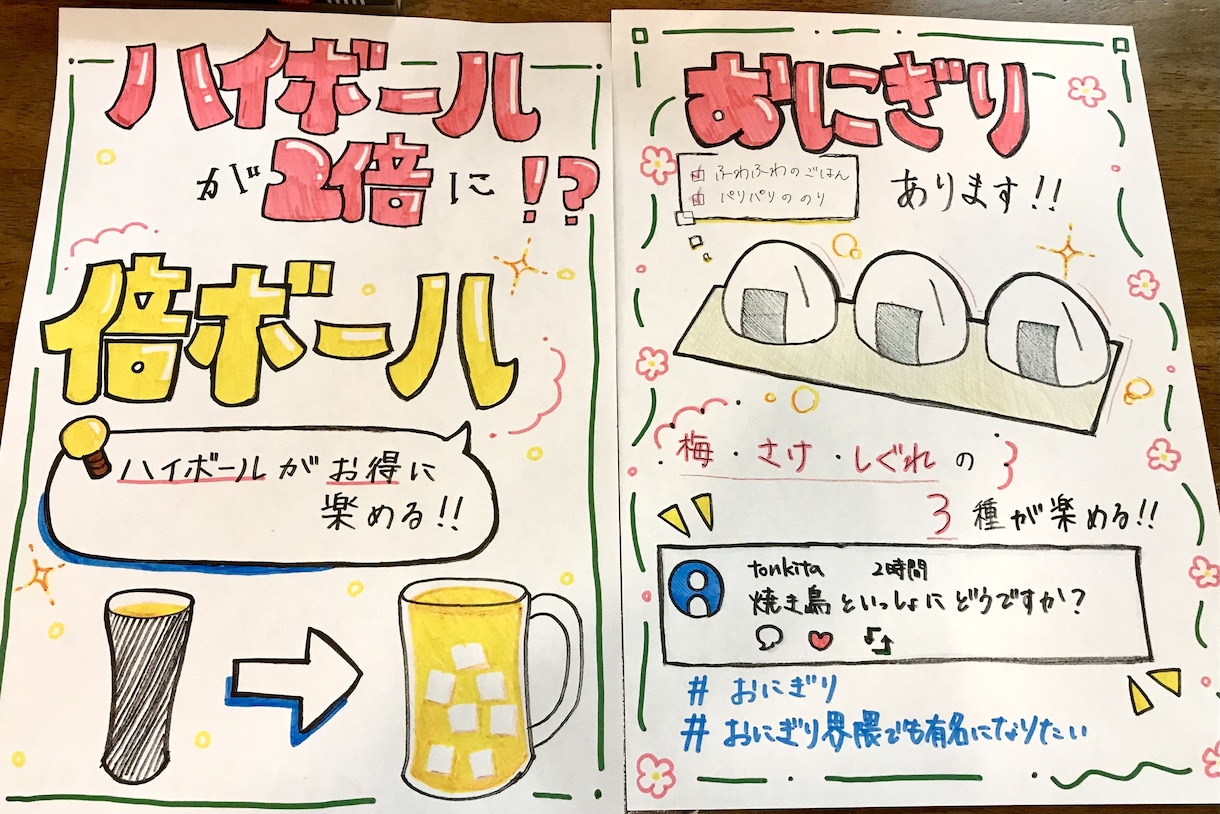 ハイボール
が2倍に!?
倍ボール
ハイボールがお得に
楽める!!
おにぎり
ふわふわのごはん
パリパリののり
あります!!
梅・さけ・しぐれの
3種が楽める!!
tonkita 2時間
焼き鳥といっしょにどうですか?
# おにぎり
# おにぎり界隈でも有名になりたい